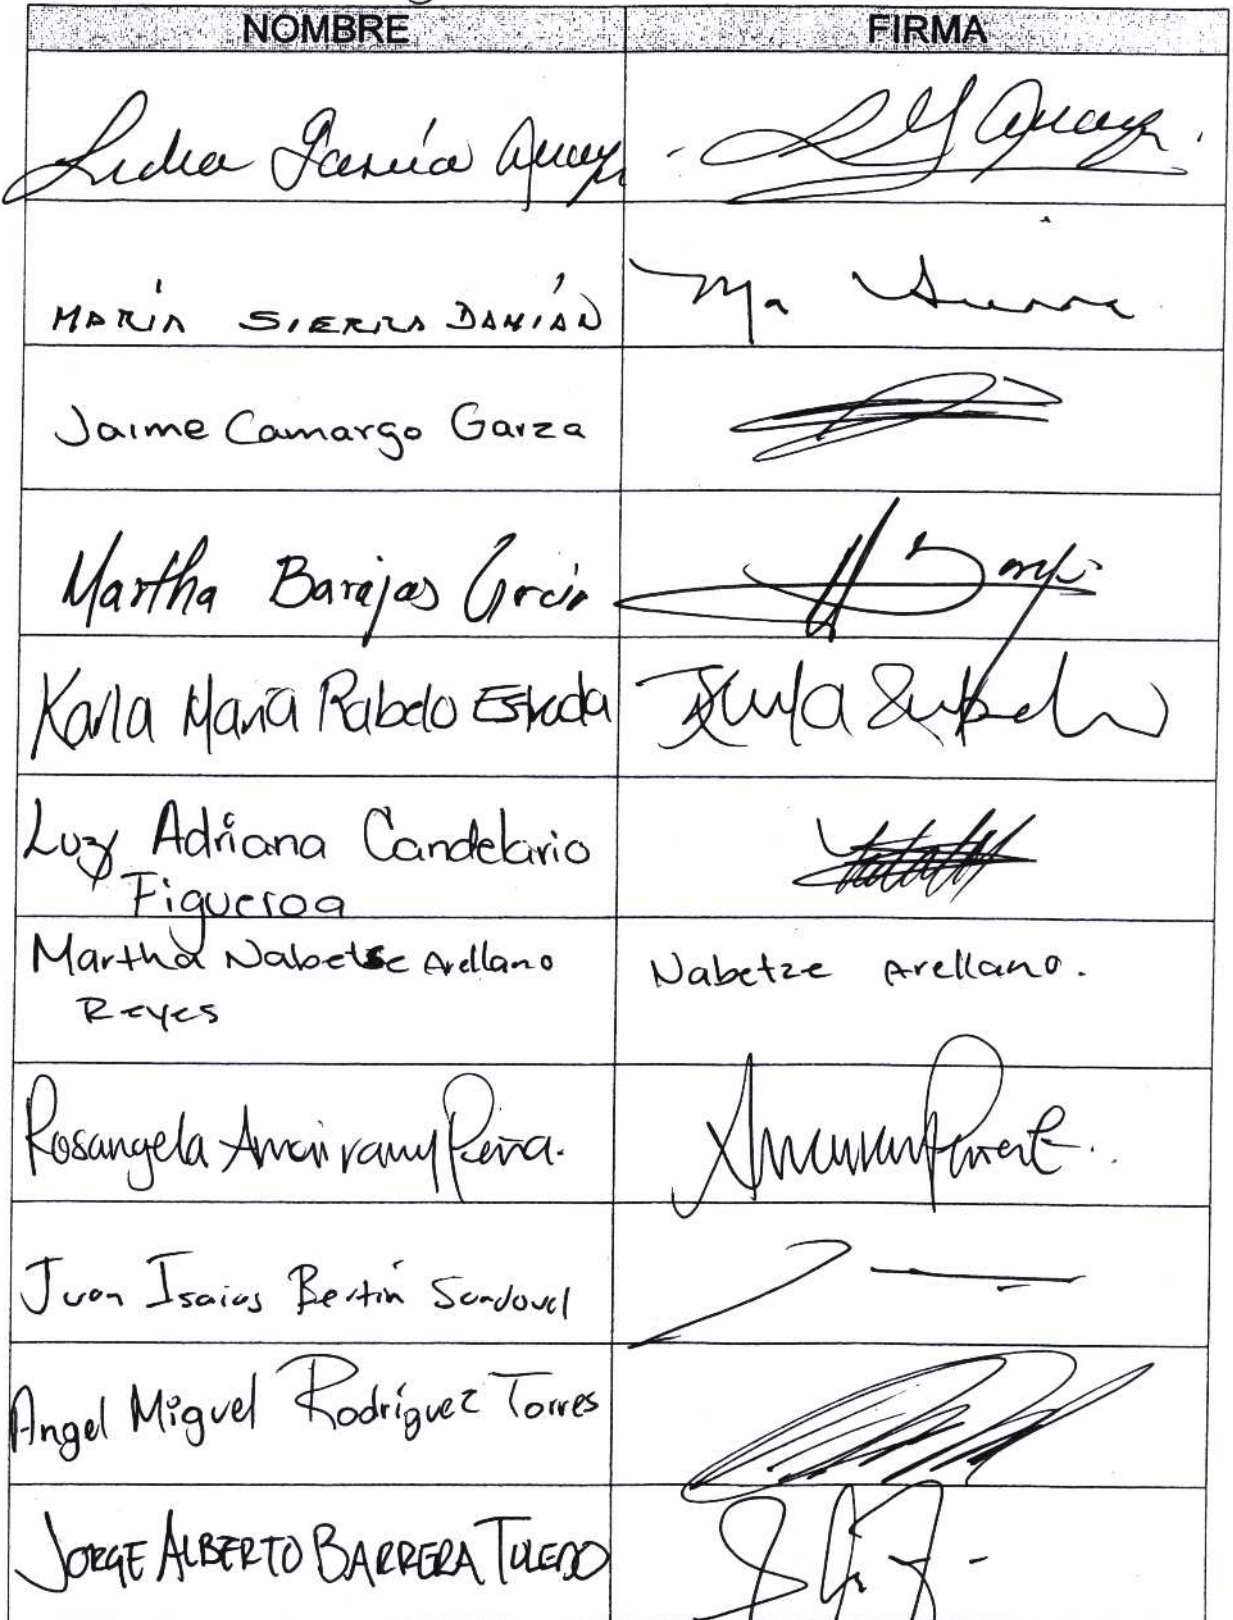 NOMBRE FIRMA
Lidia García
MARÍA SIERRA DAMIÁN Ma Sierra
Jaime Camargo Garza
Martha Barajas García
Karla María Rabelo Estrada Karla Rabelo
Luz Adriana Candelario
Figueroa
Martha Nabetse Arellano Nabetze Arellano.
Reyes
Rosangela Amairany Peña.
Juan Isaias Bertín Sandoval
Angel Miguel Rodríguez Torres
JORGE ALBERTO BARRERA TOLEDO